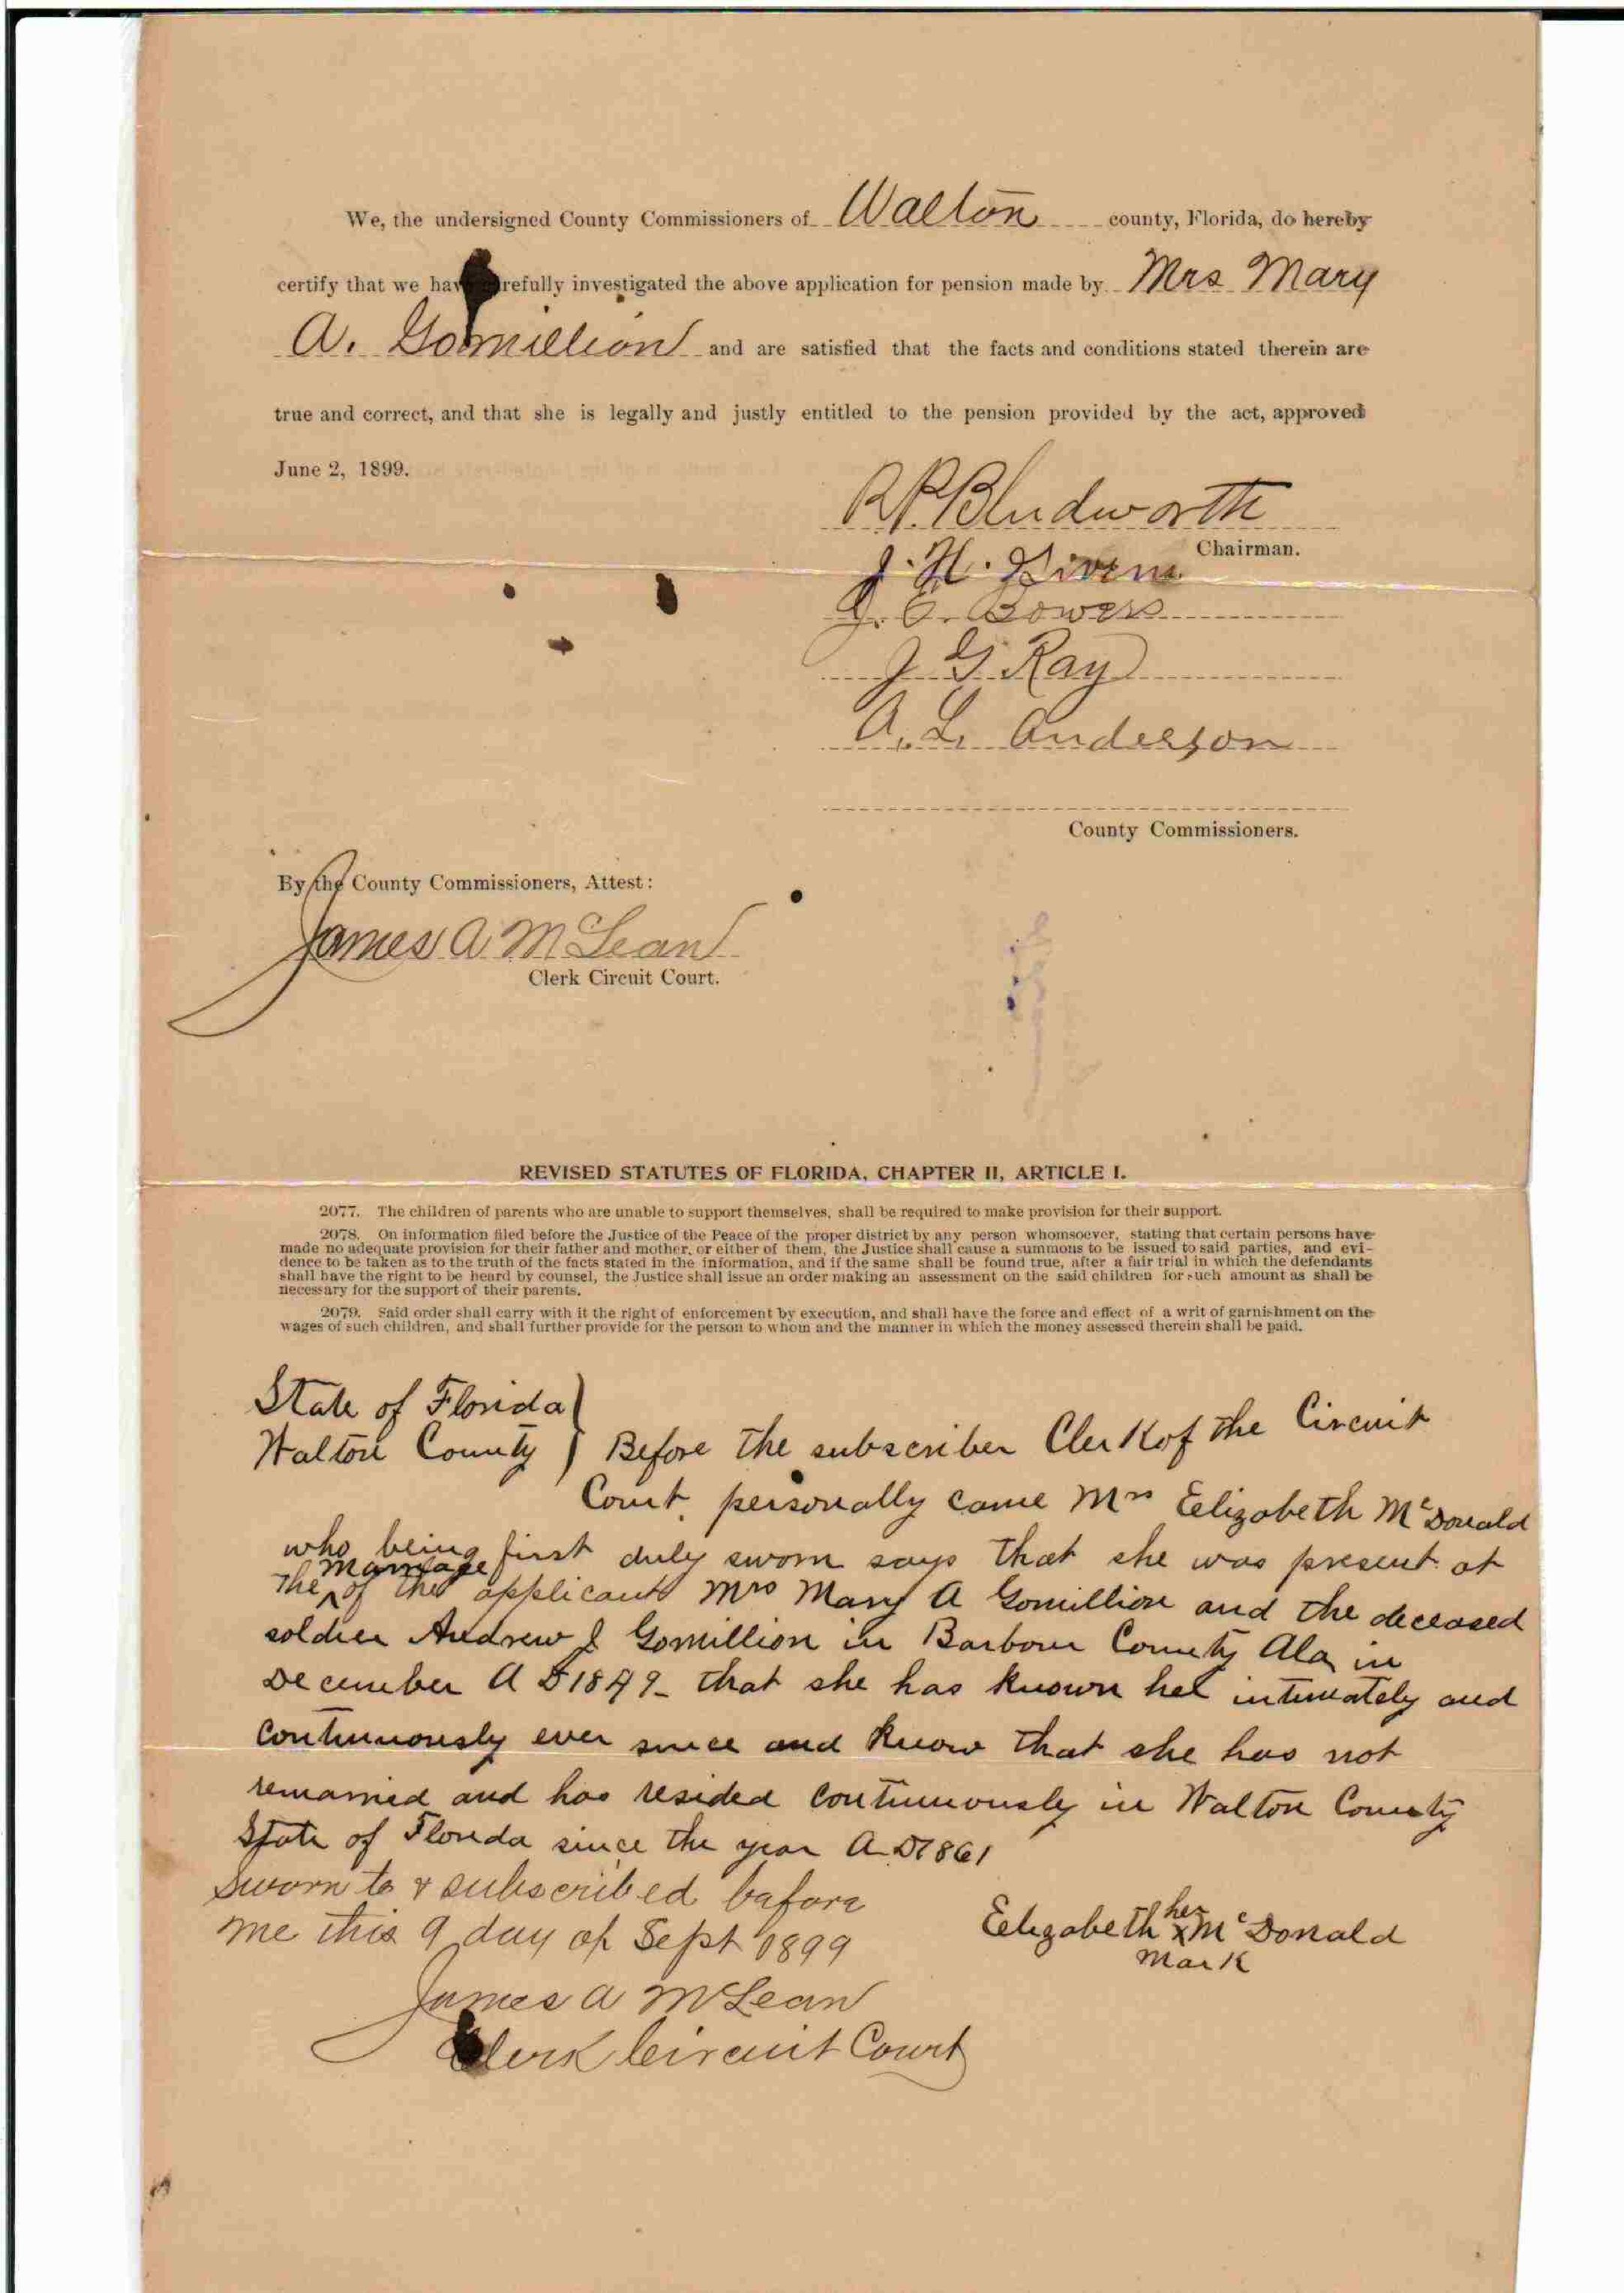 We, the undersigned County Commissioners of Walton county, Florida, do hereby
certify that we have carefully investigated the above application for pension made by Mrs Mary
A. Gomillion and are satisfied that the facts and conditions stated therein are
true and correct, and that she is legally and justly entitled to the pension provided by the act, approved
June 2, 1899.
R.P. Bludworth
Chairman.
J. H. Givens
J. E. Bowers
J G Ray
A. L. Anderson
County Commissioners.
By the County Commissioners, Attest:
James A McLean
Clerk Circuit Court.
REVISED STATUTES OF FLORIDA, CHAPTER II, ARTICLE I.
2077. The children of parents who are unable to support themselves, shall be required to make provision for their support.
2078. On information filed before the Justice of the Peace of the proper district by any person whomsoever, stating that certain persons have
made no adequate provision for their father and mother, or either of them, the Justice shall cause a summons to be issued to said parties, and evi-
dence to be taken as to the truth of the facts stated in the information, and if the same shall be found true, after a fair trial in which the defendants
shall have the right to be heard by counsel, the Justice shall issue an order making an assessment on the said children for such amount as shall be
necessary for the support of their parents.
2079. Said order shall carry with it the right of enforcement by execution, and shall have the force and effect of a writ of garnishment on the
wages of such children, and shall further provide for the person to whom and the manner in which the money assessed therein shall be paid.
State of Florida
Walton County } Before the subscriber Clerk of the Circuit
Court, personally came Mrs Eelizabeth McDonald
who being first duly sworn says that she was present at
the marriage of the applicant Mrs Mary A Gomillion and the deceased
soldier Andrew J Gomillion in Barbour County Ala in
December A D 1849 - that she has known her intimately and
continuously ever since and know that she has not
remarried and has resided continuously in Walton County
State of Florida since the year A D 1861
Sworn to & subscribed before
me this 9 day of Sept 1899
Eelizabeth her x McDonald
mark
James A McLean
Clerk Circuit Court